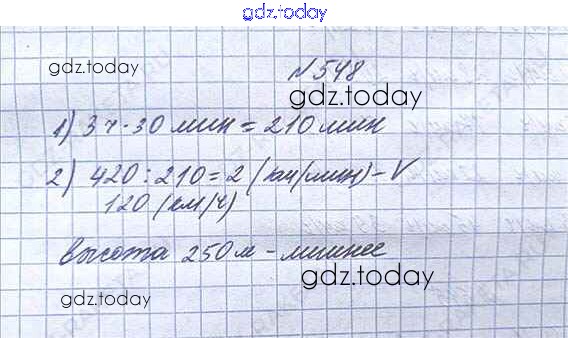 gdz.today
gdz.today
№ 548
gdz.today
1) 3 ч · 30 мин = 210 мин
2) 420 : 210 = 2 (км/мин) - V
120 (км/ч)
высота 250 м - лишнее
gdz.today
gdz.today